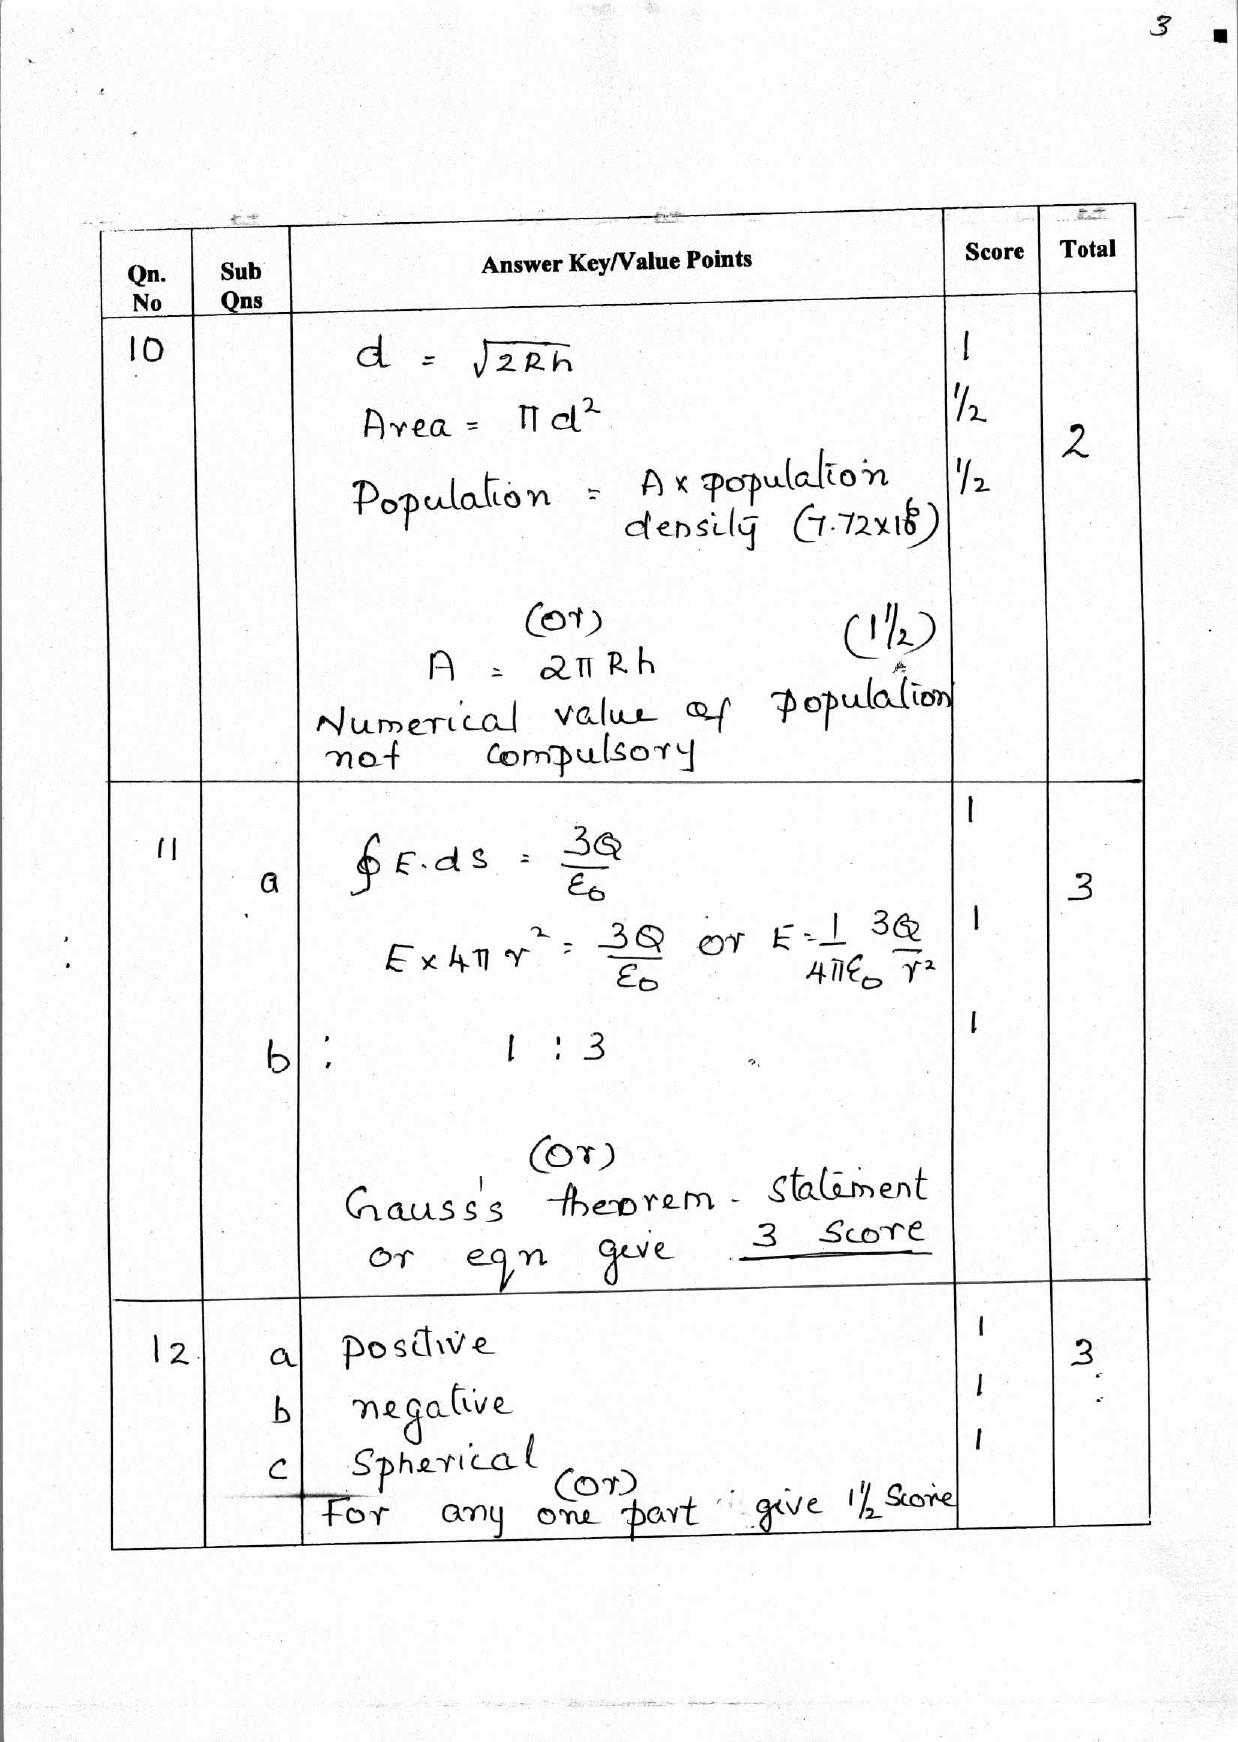 3
Qn. No | Sub Qns | Answer Key/Value Points | Score | Total
10 | | d = √2Rh | 1 |
Area = πd² | ½ | 2
Population = A × population | ½
density (7.72×10⁶)
(or) (1½)
A = 2πRh
Numerical value of population
not compulsory
11 | a | ∮E.ds = 3Q/ε₀ | 1 | 3
E × 4πr² = 3Q/ε₀ or E = 1/4πε₀ 3Q/r² | 1
b : 1 : 3 | 1
(or)
Gauss's theorem - statement
or eqn give 3 Score
12 | a | positive | 1 | 3
b | negative | 1
c | Spherical | 1
(or)
For any one part give 1½ Score